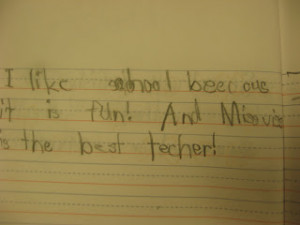 I like school becous
it is fun! And
is the best techer!